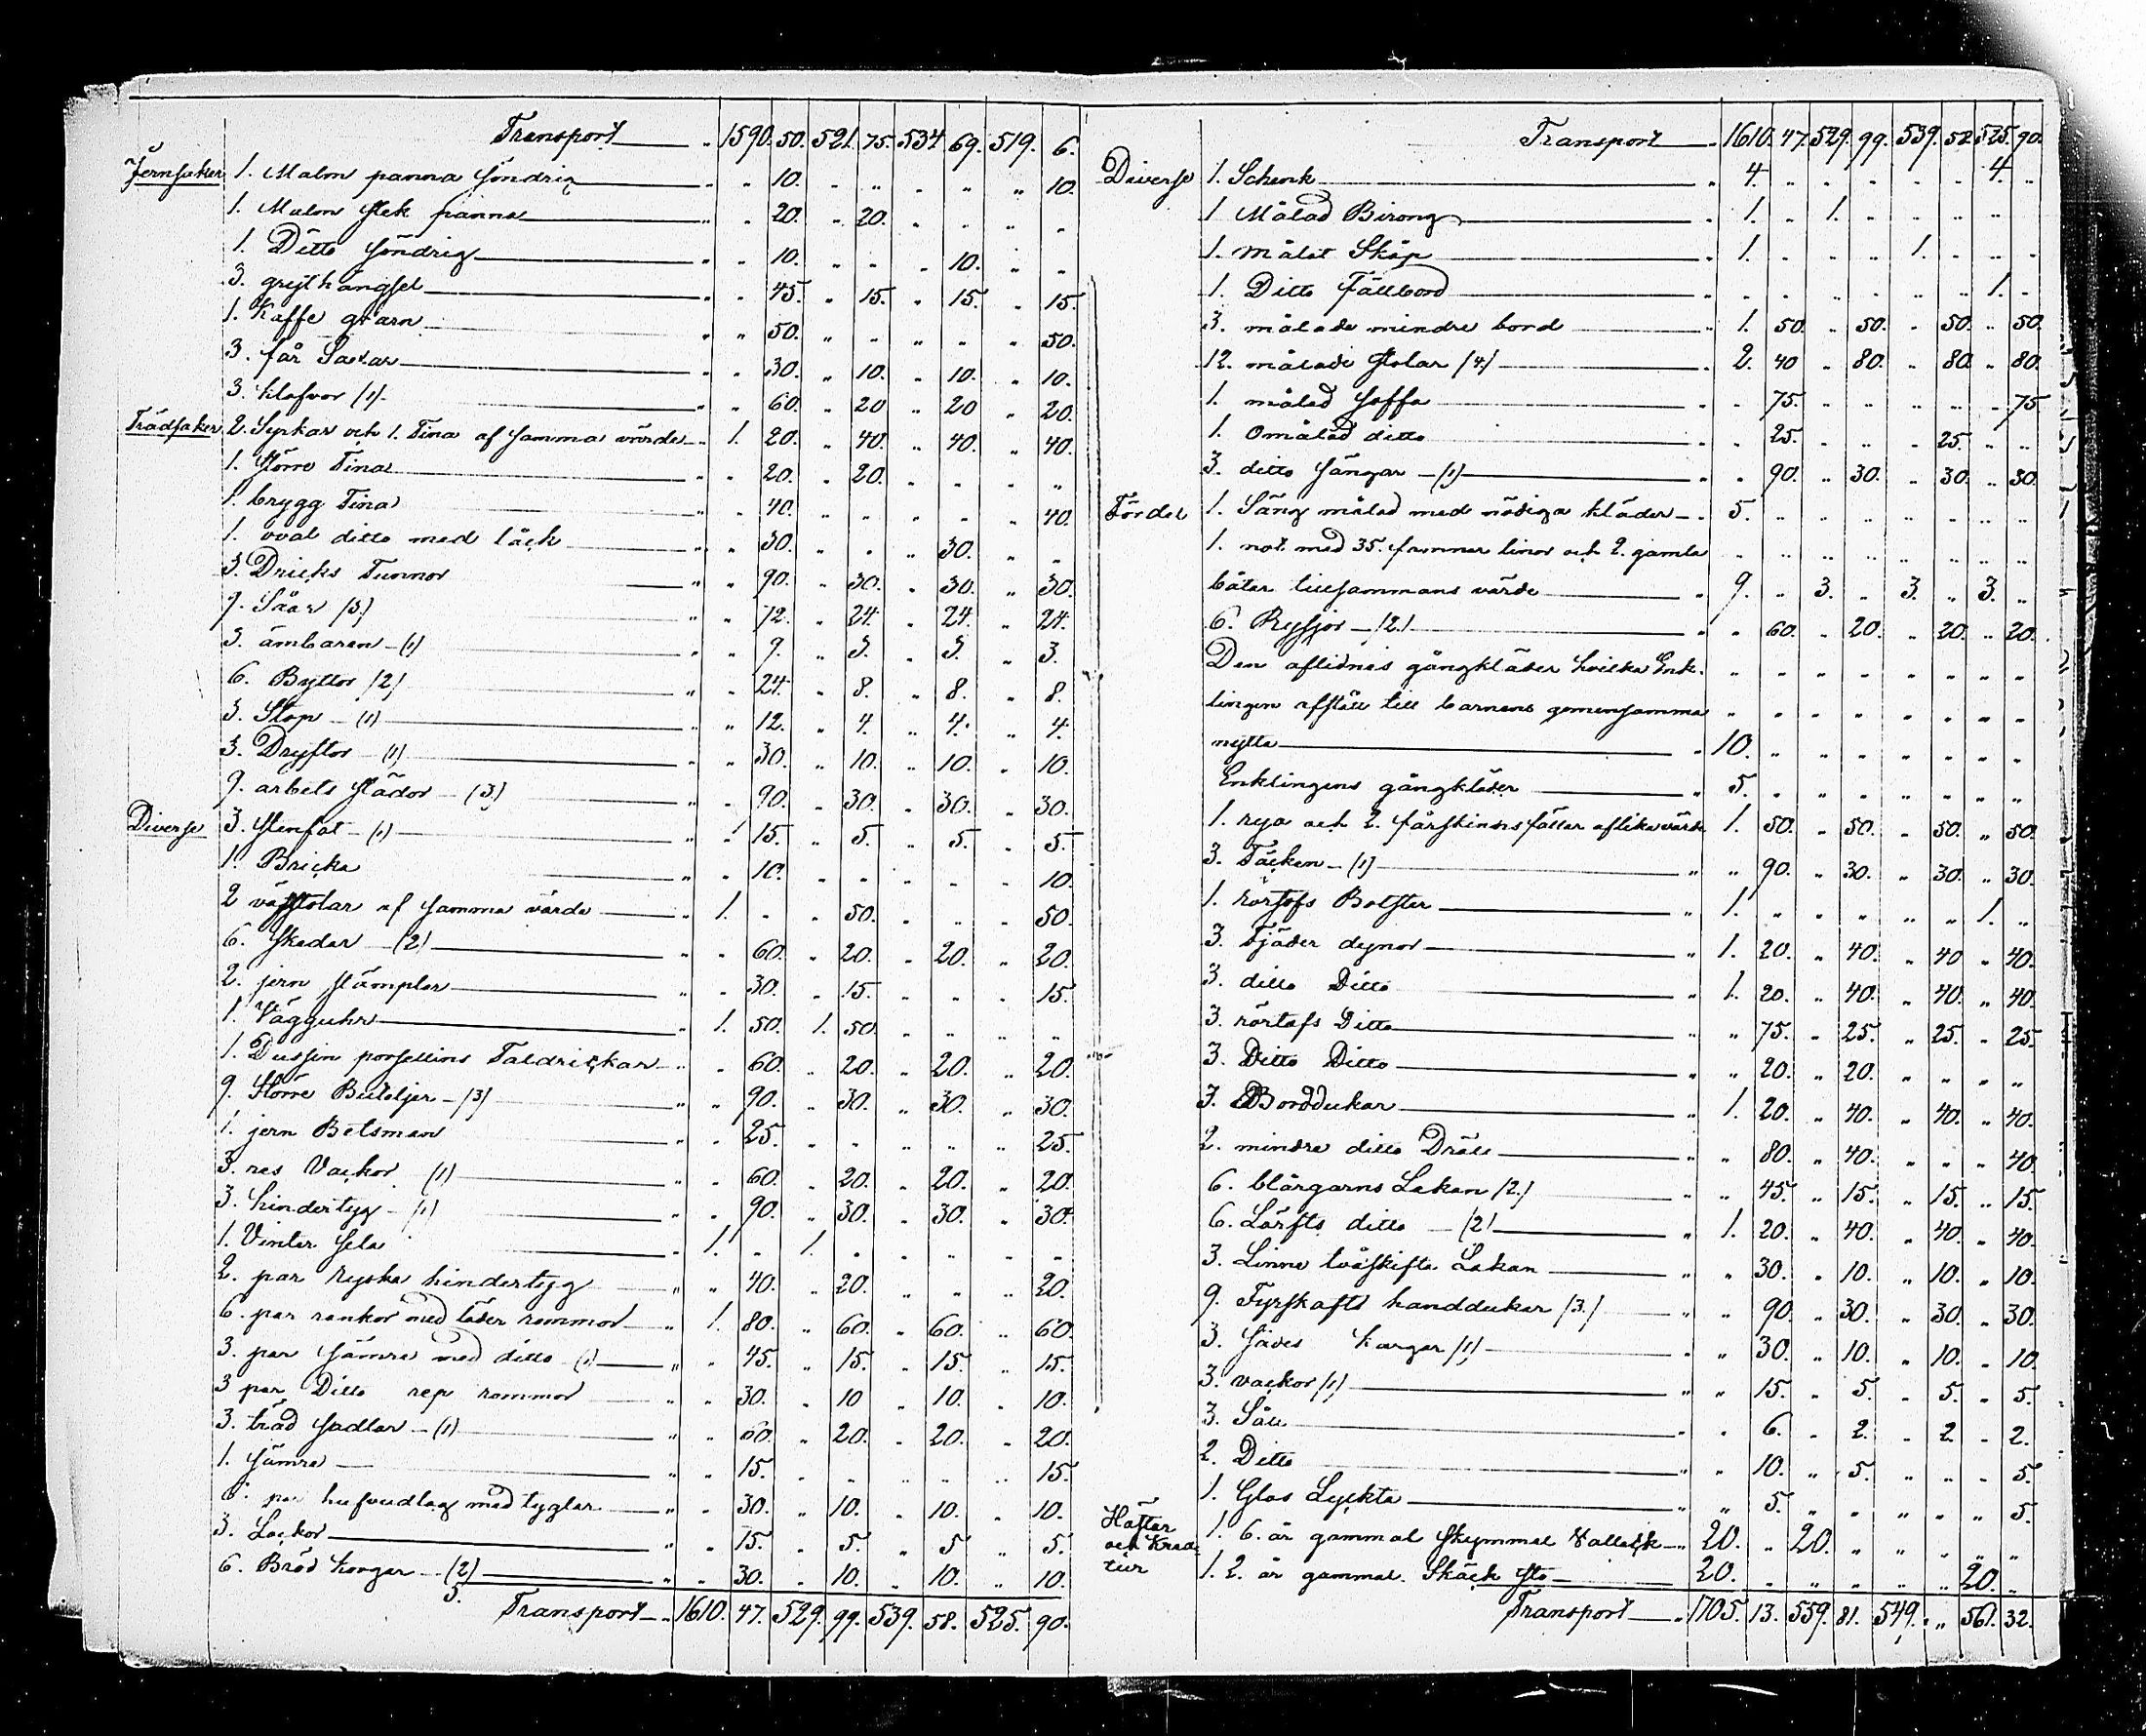 Transport 1590. 50. 521. 75. 534 69. 519. 6.
Jernsaker 1. Malm panna söndrig " " 10. " " " " " 10.
1. Malm stek panna " " 20. " 20. " " " "
1. Ditto söndrig " " 10. " " " 10. " "
3. grythängsel " " 45. " 15. " 15. " 15.
1. kaffe qvarn " " 50. " " " " " 50.
3. får Saxar " " 30. " 10. " 10. " 10.
3. klafvor (1). " " 60. " 20 " 20 " 20.
Trädsaker 2. Syrkar och 1. Tina af samma värde 1. 20. " 40. " 40. " 40.
1. större Tina " " 20. " 20. " " " "
1. brygg Tina 40. " " " " " 40.
1. oval ditto med läck " " 30. " " " 30. " "
3. Dricks Tunnor " " 90. " 30. " 30. " 30.
9. Såar (3.) " " 72. " 24. " 24. " 24.
3. ämbaren (1) " " 9. " 3. " 3. " 3.
6. Byttor (2) " " 24. " 8. " 8. " 8.
3. Stop (1) " " 12. " 4. " 4. " 4.
3. Dryftor (1) " " 30. " 10. " 10. " 10.
9. arbets slädor (3.) " " 90. " 30. " 30. " 30.
Diverse 3. stenfat (1) " " 15. " 5. " 5. " 5.
1. Bricka " " 10. " " " " " 10.
2 väfstolar af samma värde " 1. " " 50. " " " 50.
6. skedar (2) " " 60. " 20. " 20. " 20.
2. jern stämplar " " 30. " 15. " " " 15.
1. Vägguhr " 1. 50. 1. 50. " " " "
1. Dussin porsellins Taldrickar " " 60. " 20. " 20. " 20.
9. större Buteljer (3) " " 90. " 30. " 30. " 30.
1. jern Betsman " 25. " " " " " 25.
3. res Vackor (1) " " 60. " 20. " 20. " 20.
3. hindertyg (1) " " 90. " 30. " 30. " 30.
1. Vinter sela " 1. " 1. " " " " "
2. par Ryska hindertyg " " 40. " 20. " " " 20.
6. par rankor med läder remmor " 1. 80. " 60. " 60. " 60.
3. par sämre med ditto (1) " " 45. " 15. " 15. " 15.
3 par Ditto rep remmor " " 30. " 10 " 10. " 10.
3. träd sadlar (1) " " 60. " 20. " 20. " 20.
1. sämre " " 15. " " " " " 15.
par hufvudlag med tyglar " " 30. " 10. " 10. " 10.
3. Lackor " " 15. " 5. " 5 " 5.
6. Bröd korgar (2) " " 30. " 10. " 10. " 10.
Transport 1610. 47. 529. 99. 539. 58. 525. 90.
Transport 1610. 47. 529. 99. 539. 58. 525. 90.
Diverse 1. Schenk " 4. " " " " " 4. "
1 Målad Birong " 1. " 1. " " " " "
1. målat Skåp " 1. " " " 1. " " "
1. Ditto Fällbord " " " " " " " 1. "
3. målade mindre bord " 1. 50. " 50. " 50. " 50.
12. målade stolar (4.) 2. 40 " 80. " 80. " 80.
1. målad soffa " " 75. " " " " " 75.
1. omålad ditto " " 25. " " " 25. " "
3. ditto sängar (1) " " 90. " 30. " 30. " 30.
Fördel 1. Säng målad med nödiga kläder 5. " " " " " " "
1. not med 35. famnar linor och 2. gamla " " " " " " " "
båtar tillsammans värde " 9. " 3. " 3. " 3. "
6. Ryssjor (2.) " " 60. " 20. " 20. " 20.
Den aflidnes gångkläder hvilka Enk- " " " " " " " "
lingen afstått till barnens gemensamma " " " " " " " "
nytta " 10. " " " " " " "
Enklingens gångkläder " 5. " " " " " " "
1. rya och 2. fårskinns fällar af lika värde 1. 50. " 50. " 50. " 50.
3. Täcken (1) " " 90. " 30. " 30. " 30.
1. rörtofs Bolster " 1. " " " " " 1. "
3. Fjäder dynor 1. 20. " 40. " 40 " 40.
3. ditto Ditto " 1. 20. " 40. " 40. " 40.
3. rörtofs Ditto " " 75. " 25. " 25. " 25.
3. Ditto Ditto " " 20. " 20. " " " "
3. Borddukar " 1. 20. " 40. " 40. " 40.
2. mindre ditto Dräll " " 80. " 40. " " " 40.
6. blårgarns Lakan (2.) " " 45. " 15. " 15. " 15.
6. Lärfts ditto (2) " 1. 20. " 40. " 40. " 40.
3. Linne tvåskifte Lakan " " 30. " 10. " 10. " 10.
9. Fyrskafts handdukar (3.) " " 90. " 30. " 30. " 30.
3. sädes korgar (1) " " 30. " 10. " 10. " 10.
3. vackor (1) " " 15. " 5. " 5. " 5.
3. Såll " " 6. " 2. " 2 " 2.
2. Ditto " " 10. " 5. " " " 5.
1. Glas Lyckta " " 5. " " " " " 5.
Hästar och Kreatur 1. 6. år gammal skymmel Vallack 20. " 20. " " " " "
1. 2. år gammal Skäck sto 20. " " " " " 20. "
Transport 1705. 13. 559. 81. 549. " 561. 32.